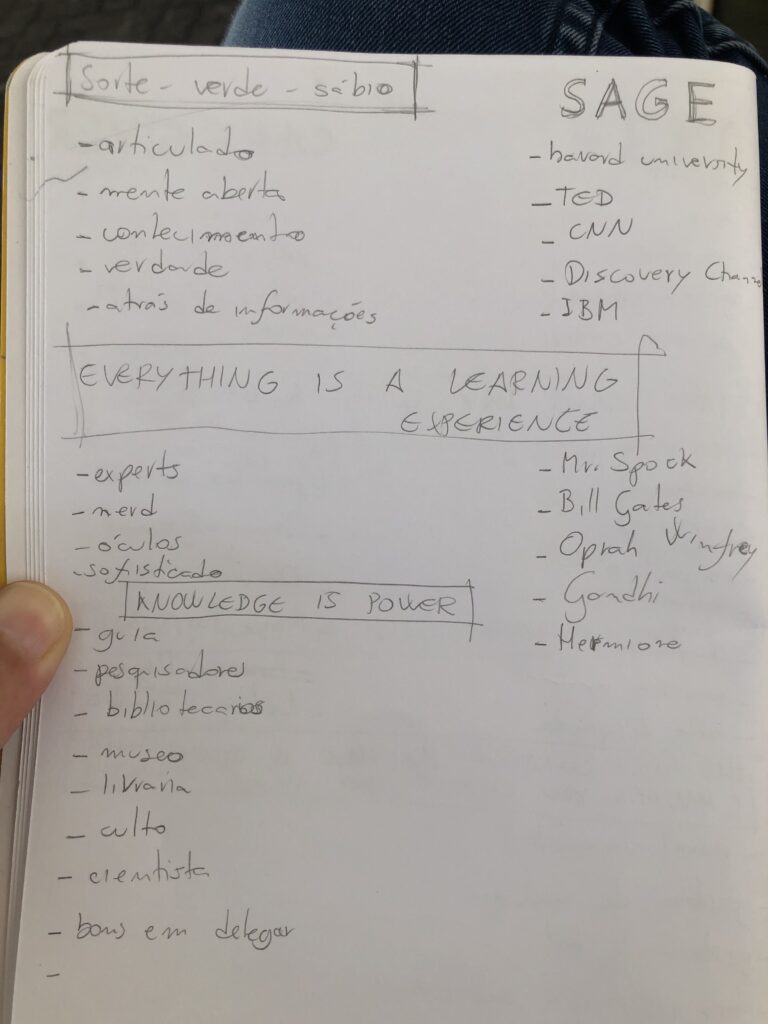 Sorte - verde - sábio
SAGE
- articulado
- mente aberta
- conhecimento
- verdade
- atrás de informações
- havard university
- TED
- CNN
- Discovery Chann
- IBM
EVERYTHING IS A LEARNING
EXPERIENCE
- experts
- nerd
- óculos
- sofisticado
- Mr. Spock
- Bill Gates
- Oprah Winfrey
- Gandhi
- Hermione
KNOWLEDGE IS POWER
- guia
- pesquisadores
- bibliotecarios
- museo
- livraria
- culto
- cientista
- bons em delegar
-